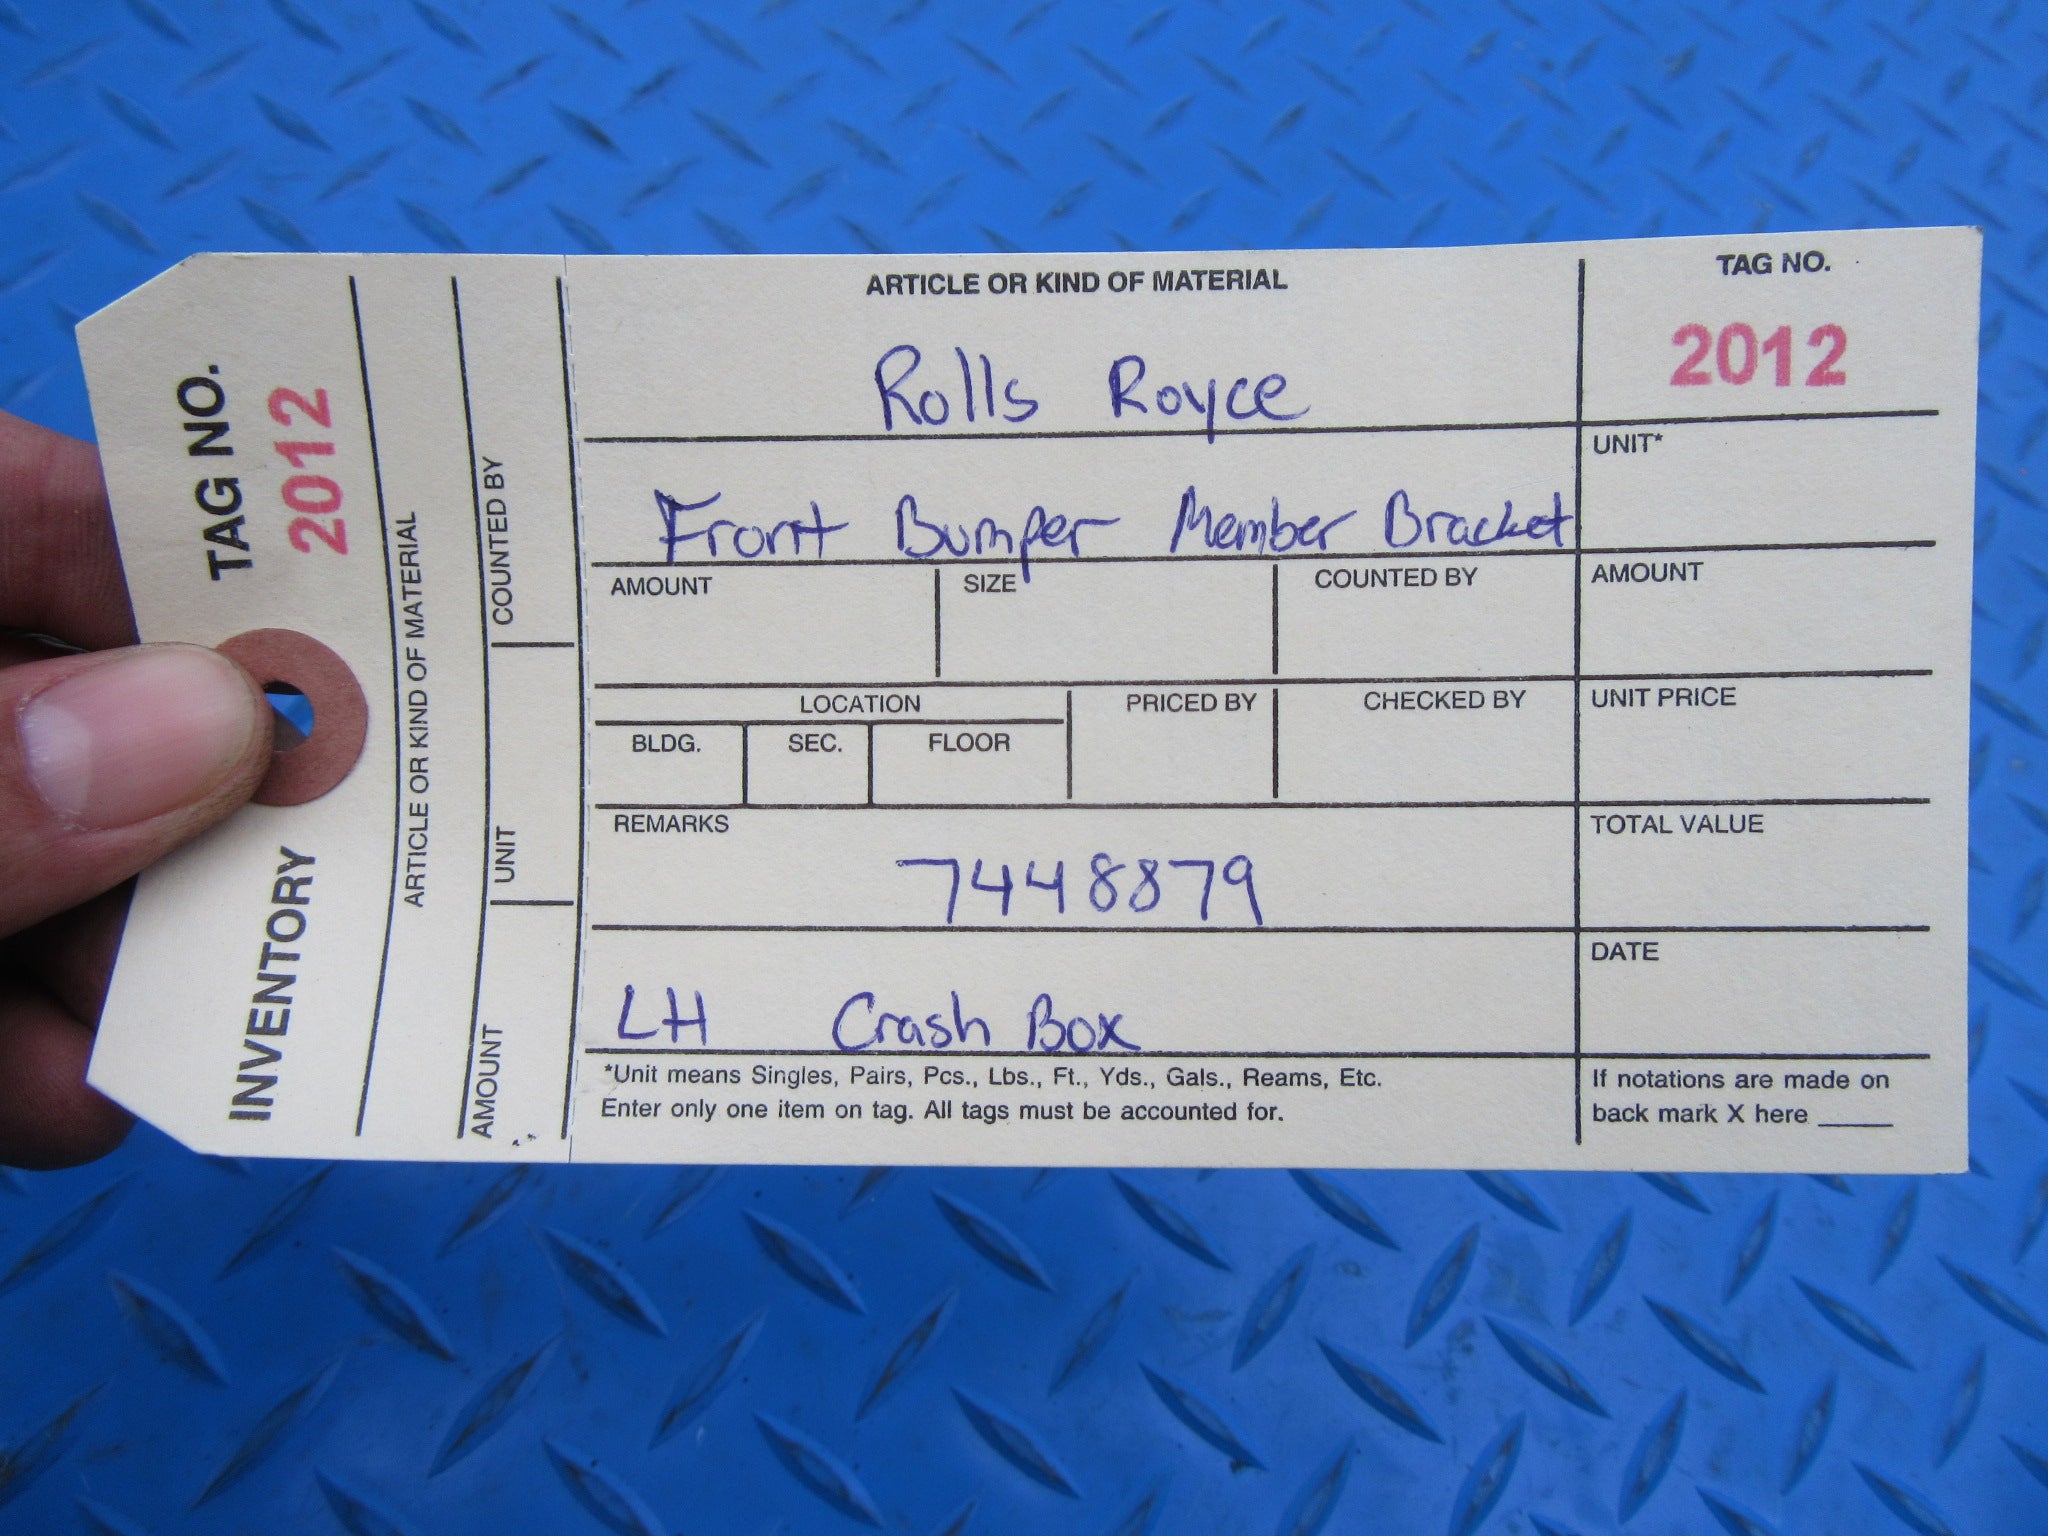 TAG NO.
2012
INVENTORY
ARTICLE OR KIND OF MATERIAL
COUNTED BY
UNIT
AMOUNT
ARTICLE OR KIND OF MATERIAL
Rolls Royce
Front Bumper Member Bracket
AMOUNT SIZE COUNTED BY
LOCATION PRICED BY CHECKED BY
BLDG. SEC. FLOOR
REMARKS
7448879
LH Crash Box
*Unit means Singles, Pairs, Pcs., Lbs., Ft., Yds., Gals., Reams, Etc.
Enter only one item on tag. All tags must be accounted for.
TAG NO.
2012
UNIT*
AMOUNT
UNIT PRICE
TOTAL VALUE
DATE
If notations are made on
back mark X here _____